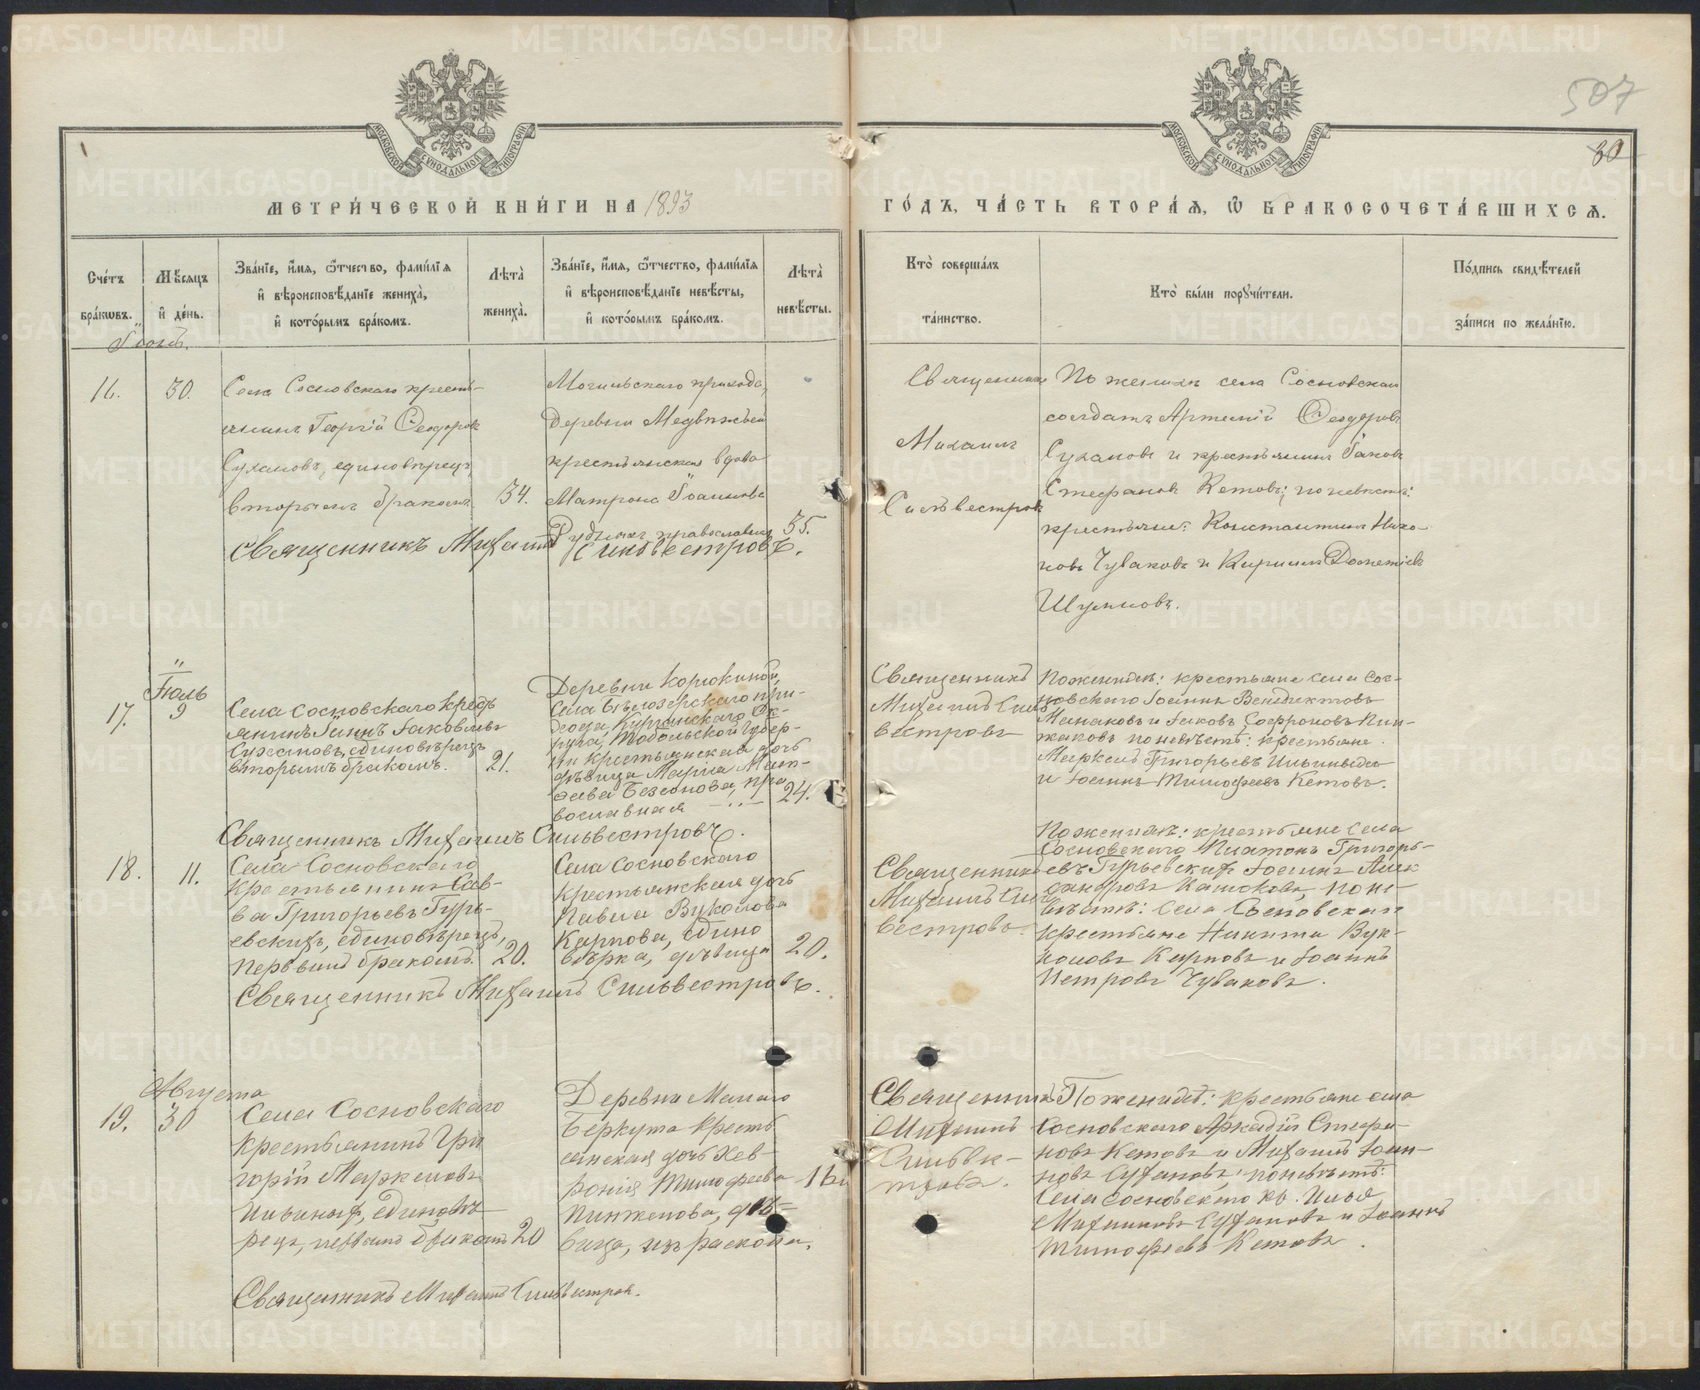 507
30
МЕТРИ́ЧЕСКОЙ КНИ́ГИ НА 1893
ГО́ДЪ, ЧА́СТЬ ВТОРА́Я, Ѽ БРАКОСОЧЕТА́ВШИХСЯ.
Сче́тъ бра́кωвъ.
Мѣ́сяцъ и҆ де́нь.
Зва́нїе, и҆́мя, ѻ҆́тчество, фами́лїя
и҆ вѣроисповѣ́данїе жениха̀,
и҆ кото́рымъ бра́комъ.
Лѣ́та̀ жениха̀.
Зва́нїе, и҆́мя, ѻ҆́тчество, фами́лїя
и҆ вѣроисповѣ́данїе невѣ́сты,
и҆ кото́рымъ бра́комъ.
Лѣ́та̀ невѣ́сты.
Кто̀ соверша́лъ
та́инство.
Кто̀ бы́ли порꙋчи́тели.
По́дпись свидѣ́телей
за́писи по жела́нїю.
16.
30.
Села Сосновскаго кресть-
янинъ Георгій Ѳеодоровъ
Сухановъ, единовѣрецъ
вторымъ бракомъ
34.
Могильскаго прихода,
деревни Медвѣжьей
крестьянская вдова
Матрона Іоаннова
православная
35.
Священникъ Михаилъ Сильвестровъ.
Священникъ
Михаилъ
Сильвестровъ
По женихѣ села Сосновскаго
солдатъ Артемій Ѳеодоровъ
Сухановъ и крестьянинъ Іаковъ
Стефановъ Кетовъ; по невѣстѣ:
крестьяне: Константинъ Нико-
новъ Чуваковъ и Кириллъ Дометіевъ
Шулиновъ.
Іюль
17.
9
Села Сосновскаго крест
янинъ Іаннъ Іаковлевъ
Сухановъ, единовѣрецъ
вторымъ бракомъ.
21.
Деревни Корюкиной
села Бѣлозерскаго при-
хода, Курганскаго Ок-
руга, Тобольской Губер-
ніи крестьянская дочь
дѣвица Марія Мат-
ѳеева Безсонова, пра
вославная
24.
Священникъ Михаилъ Сильвестровъ.
Священникъ
Михаилъ Силь
вестровъ
По женихѣ: крестьяне села Сос-
новскаго Іоаннъ Венедиктовъ
Манаковъ и Іаковъ Софроновъ Пин-
жаковъ по невѣстѣ: крестьяне
Маркелъ Григорьевъ Ильиныхъ
и Іоаннъ Тимофеевъ Кетовъ.
18.
11.
Села Сосновскаго
крестьянинъ Сав-
ва Григорьевъ Гурь-
евскихъ, единовѣрецъ,
первымъ бракомъ.
20.
Села Сосновскаго
крестьянская дочь
Павла Вуколова
Карпова, едино
вѣрка, дѣвица
20.
Священникъ Михаилъ Сильвестровъ.
Священникъ
Михаилъ Силь
вестровъ.
По женихѣ: крестьяне села
Сосновскаго Платонъ Григорь-
евъ Гурьевскихъ Іоаннъ Алек
сандровъ по не-
вѣстѣ: села Сосновскаго
крестьяне Никита Вук-
коловъ Карповъ и Іоаннъ
Петровъ Чуваковъ.
Августа
19.
30
Села Сосновскаго
крестьянинъ Гри
горій Маркеловъ
Ильиныхъ, единовѣ-
рецъ, первымъ бракомъ
20
Деревни Малаго
Беркута кресть
янская дочь Хев-
ронія Тимофеева
Пинженова, дѣ-
вица, изъ раскола.
16
Священникъ Михаилъ Сильвестровъ.
Священникъ
Михаилъ
Сильве-
стровъ.
По женихѣ: крестьяне села
Сосновскаго Аркадій Стефа-
новъ Кетовъ и Михаилъ Іоан-
новъ Сухановъ; по невѣстѣ:
села Сосновскаго кр. Илья
Михаиловъ Сухановъ и Іоаннъ
Тимофеевъ Кетовъ.